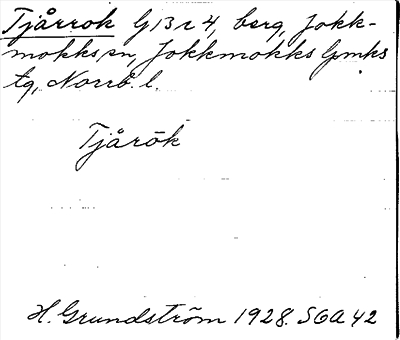 Tjårrok G13r4, berg, Jokk-
mokks sn, Jokkmokks lpmks
tg, Norrb. l.
Tjårōk
H. Grundström 1928. SOA 42